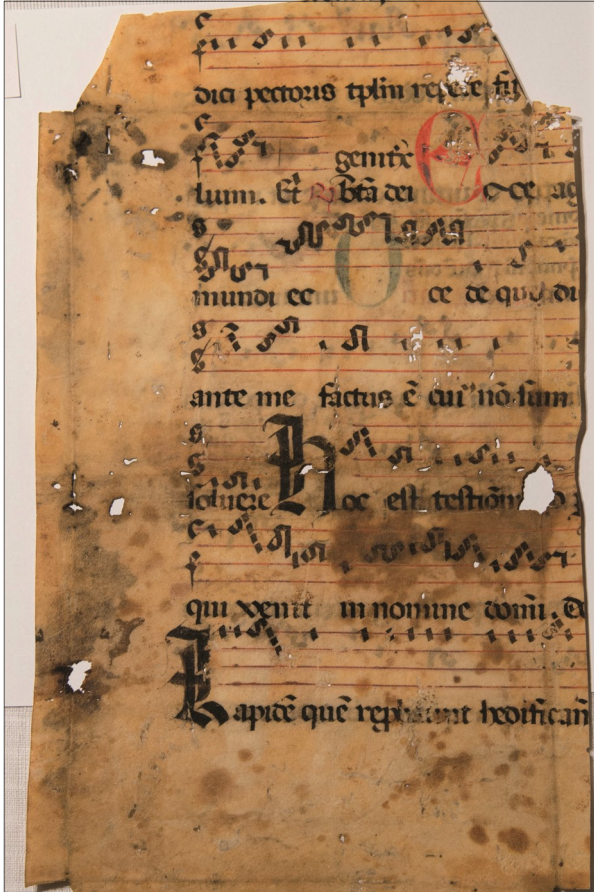 dici pectoris tplm repete fi
genitx̄
lium. Et bt̄a dei Ecce ag
mundi ec O ce de quo di
ante me factus ē cui nō sum
soluere Hoc est testiōm
qui venit in nomine domī. D
Lapidē quē reprobaūnt hedifican